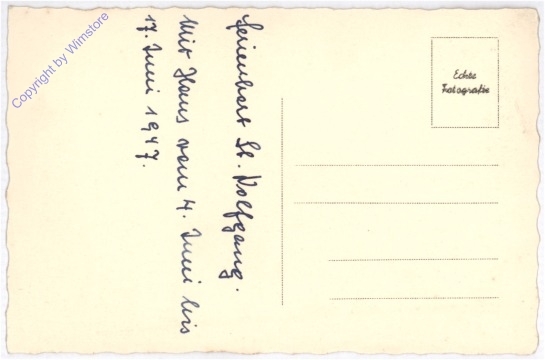 Ferienort St. Wolfgang.
Mit Hans vom 4. Juni bis
17. Juni 1947.
Echte
Fotografie
Copyright by Wimstore